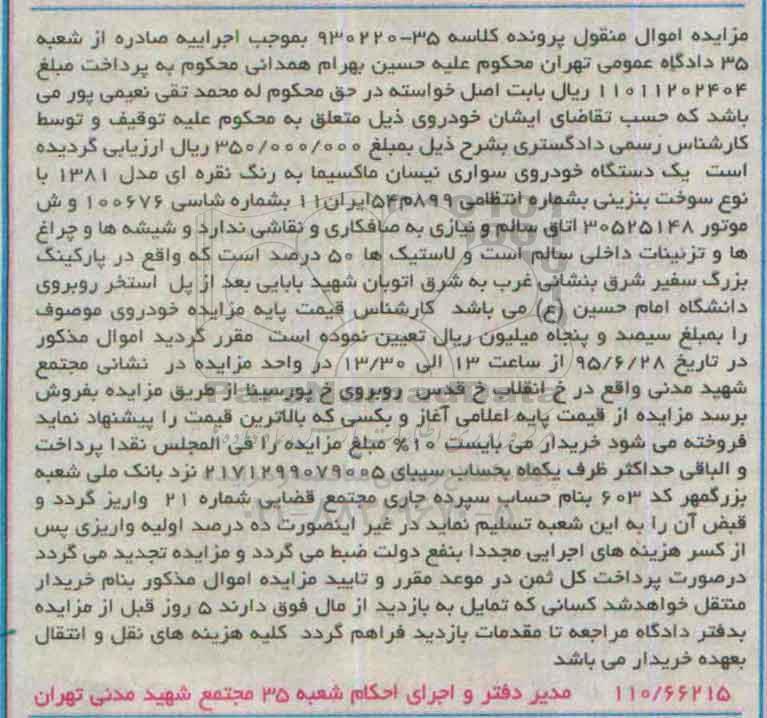 مزایده اموال منقول پرونده کلاسه ۳۵-۹۳۰۲۲۰ بموجب اجراییه صادره از شعبه
۳۵ دادگاه عمومی تهران محکوم علیه حسین بهرام همدانی محکوم به پرداخت مبلغ
۱۱۰۱۱۲۰۲۴۰۴ ریال بابت اصل خواسته در حق محکوم له محمد تقی نعیمی پور می
باشد که حسب تقاضای ایشان خودروی ذیل متعلق به محکوم علیه توقیف و توسط
کارشناس رسمی دادگستری بشرح ذیل بمبلغ ۳۵۰/۰۰۰/۰۰۰ ریال ارزیابی گردیده
است یک دستگاه خودروی سواری نیسان ماکسیما به رنگ نقره ای مدل ۱۳۸۱ با
نوع سوخت بنزینی بشماره انتظامی ۸۹۹م۵۴ایران۱۱ بشماره شاسی ۱۰۰۶۷۶ و ش
موتور ۳۰۵۲۵۱۴۸ اتاق سالم و نیازی به صافکاری و نقاشی ندارد و شیشه ها و چراغ
ها و تزئینات داخلی سالم است و لاستیک ها ۵۰ درصد است که واقع در پارکینگ
بزرگ سفیر شرق بنشانی غرب به شرق اتوبان شهید بابایی بعد از پل استخر روبروی
دانشگاه امام حسین (ع) می باشد کارشناس قیمت پایه مزایده خودروی موصوف
را بمبلغ سیصد و پنجاه میلیون ریال تعیین نموده است مقرر گردید اموال مذکور
در تاریخ ۹۵/۶/۲۸ از ساعت ۱۳ الی ۱۳/۳۰ در واحد مزایده در نشانی مجتمع
شهید مدنی واقع در خ انقلاب خ قدس روبروی خ پورسینا از طریق مزایده بفروش
برسد مزایده از قیمت پایه اعلامی آغاز و بکسی که بالاترین قیمت را پیشنهاد نماید
فروخته می شود خریدار می بایست ۱۰% مبلغ مزایده را فی المجلس نقدا پرداخت
و الباقی حداکثر ظرف یکماه بحساب سیبای ۲۱۷۱۲۹۹۰۷۹۰۰۵ نزد بانک ملی شعبه
بزرگمهر کد ۶۰۳ بنام حساب سپرده جاری مجتمع قضایی شماره ۲۱ واریز گردد و
قبض آن را به این شعبه تسلیم نماید در غیر اینصورت ده درصد اولیه واریزی پس
از کسر هزینه های اجرایی مجددا بنفع دولت ضبط می گردد و مزایده تجدید می گردد
درصورت پرداخت کل ثمن در موعد مقرر و تایید مزایده اموال مذکور بنام خریدار
منتقل خواهدشد کسانی که تمایل به بازدید از مال فوق دارند ۵ روز قبل از مزایده
بدفتر دادگاه مراجعه تا مقدمات بازدید فراهم گردد کلیه هزینه های نقل و انتقال
بعهده خریدار می باشد
۱۱۰/۶۶۲۱۵ مدیر دفتر و اجرای احکام شعبه ۳۵ مجتمع شهید مدنی تهران
ParsNamadData